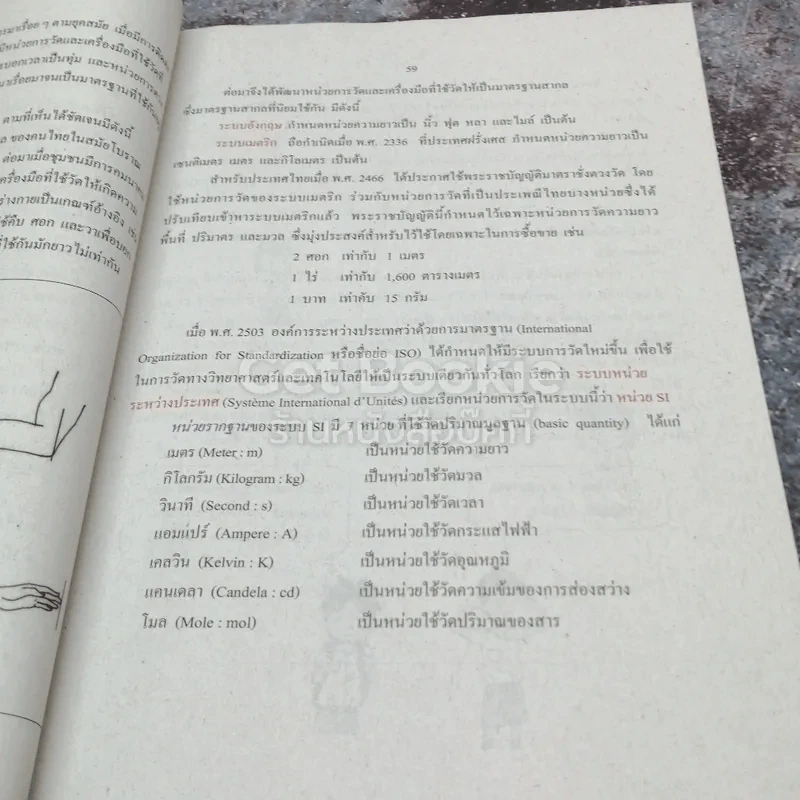 มาเรื่อย ๆ ตามยุคสมัย เมื่อมีการติดต่อ
หน่วยการวัดและเครื่องมือที่ใช้วัดที่
บอกเวลาเป็นทุ่ม และหน่วยการตวง
มาเรื่อยมาจนเป็นมาตรฐานที่ใช้กัน
ตามที่เห็นได้ชัดเจนมีดังนี้
ของคนไทยในสมัยโบราณ
ต่อมาเมื่อชุมชนมีการคมนาคม
ครื่องมือที่ใช้วัดให้เกิดความ
ร่างกายเป็นเกณฑ์อ้างอิง เช่น
ใช้คืบ ศอก และวาเพื่อบอก
ที่ใช้กันมักยาวไม่เท่ากัน
59
ต่อมาจึงได้พัฒนาหน่วยการวัดและเครื่องมือที่ใช้วัดให้เป็นมาตรฐานสากล
ซึ่งมาตรฐานสากลที่นิยมใช้กัน มีดังนี้
ระบบอังกฤษ กำหนดหน่วยความยาวเป็น นิ้ว ฟุต หลา และไมล์ เป็นต้น
ระบบเมตริก ถือกำเนิดเมื่อ พ.ศ. 2336 ที่ประเทศฝรั่งเศส กำหนดหน่วยความยาวเป็น
เซนติเมตร เมตร และกิโลเมตร เป็นต้น
สำหรับประเทศไทยเมื่อ พ.ศ. 2466 ได้ประกาศใช้พระราชบัญญัติมาตราชั่งตวงวัด โดย
ใช้หน่วยการวัดของระบบเมตริก ร่วมกับหน่วยการวัดที่เป็นประเพณีไทยบางหน่วยซึ่งได้
ปรับเทียบเข้าหาระบบเมตริกแล้ว พระราชบัญญัตินี้กำหนดไว้เฉพาะหน่วยการวัดความยาว
พื้นที่ ปริมาตร และมวล ซึ่งมุ่งประสงค์สำหรับไว้ใช้โดยเฉพาะในการซื้อขาย เช่น
2 ศอก เท่ากับ 1 เมตร
1 ไร่ เท่ากับ 1,600 ตารางเมตร
1 บาท เท่ากับ 15 กรัม
เมื่อ พ.ศ. 2503 องค์การระหว่างประเทศว่าด้วยการมาตรฐาน (International
Organization for Standardization หรือชื่อย่อ ISO) ได้กำหนดให้มีระบบการวัดใหม่ขึ้น เพื่อใช้
ในการวัดทางวิทยาศาสตร์และเทคโนโลยีให้เป็นระบบเดียวกันทั่วโลก เรียกว่า ระบบหน่วย
ระหว่างประเทศ (Système International d'Unités) และเรียกหน่วยการวัดในระบบนี้ว่า หน่วย SI
หน่วยรากฐานของระบบ SI มี 7 หน่วย ที่ใช้วัดปริมาณมูลฐาน (basic quantity) ได้แก่
เมตร (Meter : m) เป็นหน่วยใช้วัดความยาว
กิโลกรัม (Kilogram : kg) เป็นหน่วยใช้วัดมวล
วินาที (Second : s) เป็นหน่วยใช้วัดเวลา
แอมแปร์ (Ampere : A) เป็นหน่วยใช้วัดกระแสไฟฟ้า
เคลวิน (Kelvin : K) เป็นหน่วยใช้วัดอุณหภูมิ
แคนเดลา (Candela : cd) เป็นหน่วยใช้วัดความเข้มของการส่องสว่าง
โมล (Mole : mol) เป็นหน่วยใช้วัดปริมาณของสาร
GetBookie
ร้านหนังสือบุ๊คกี้